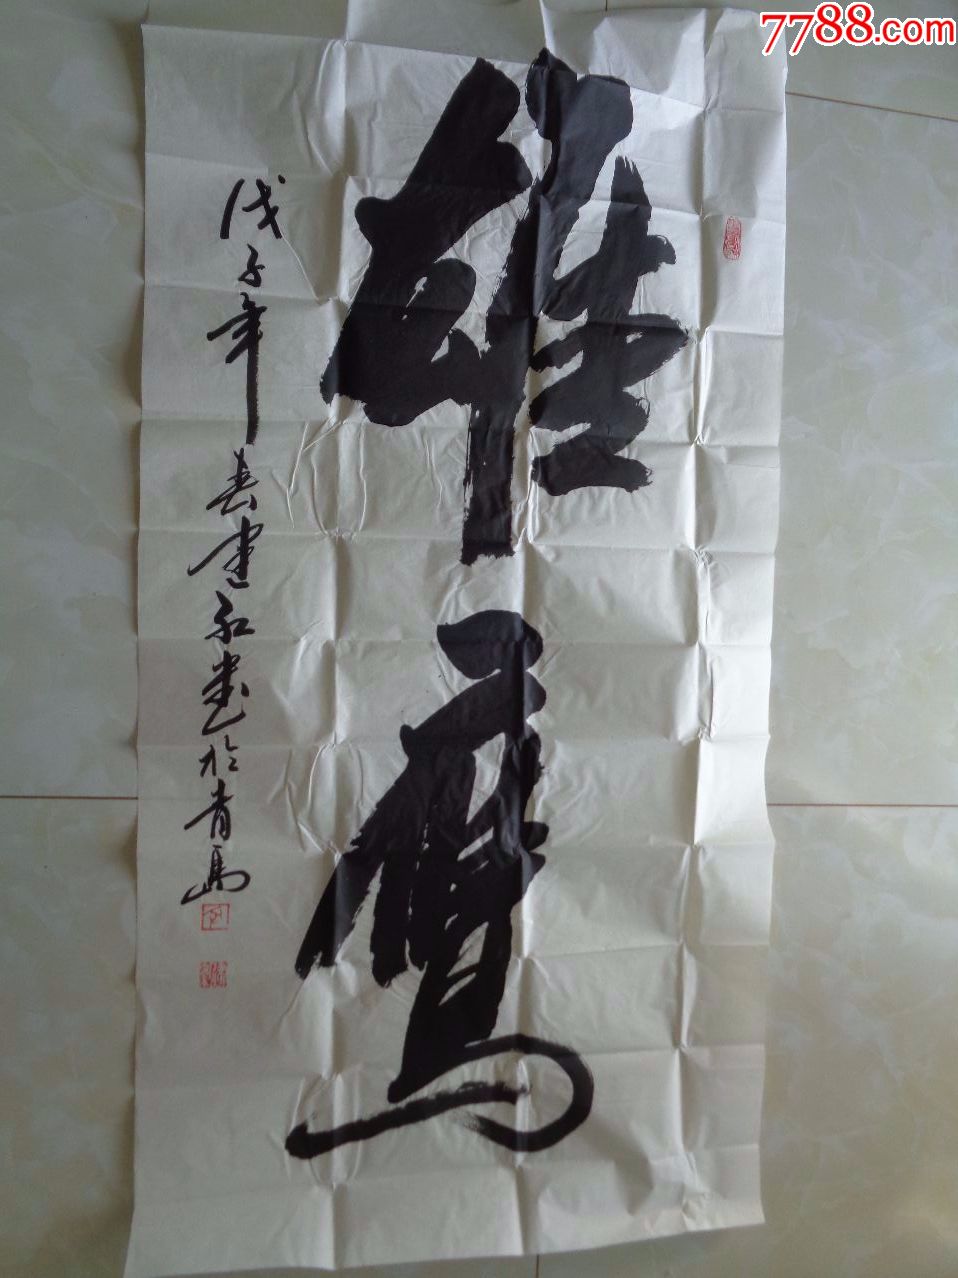 7788.com
雄鹰
戊子年春建永书於青島